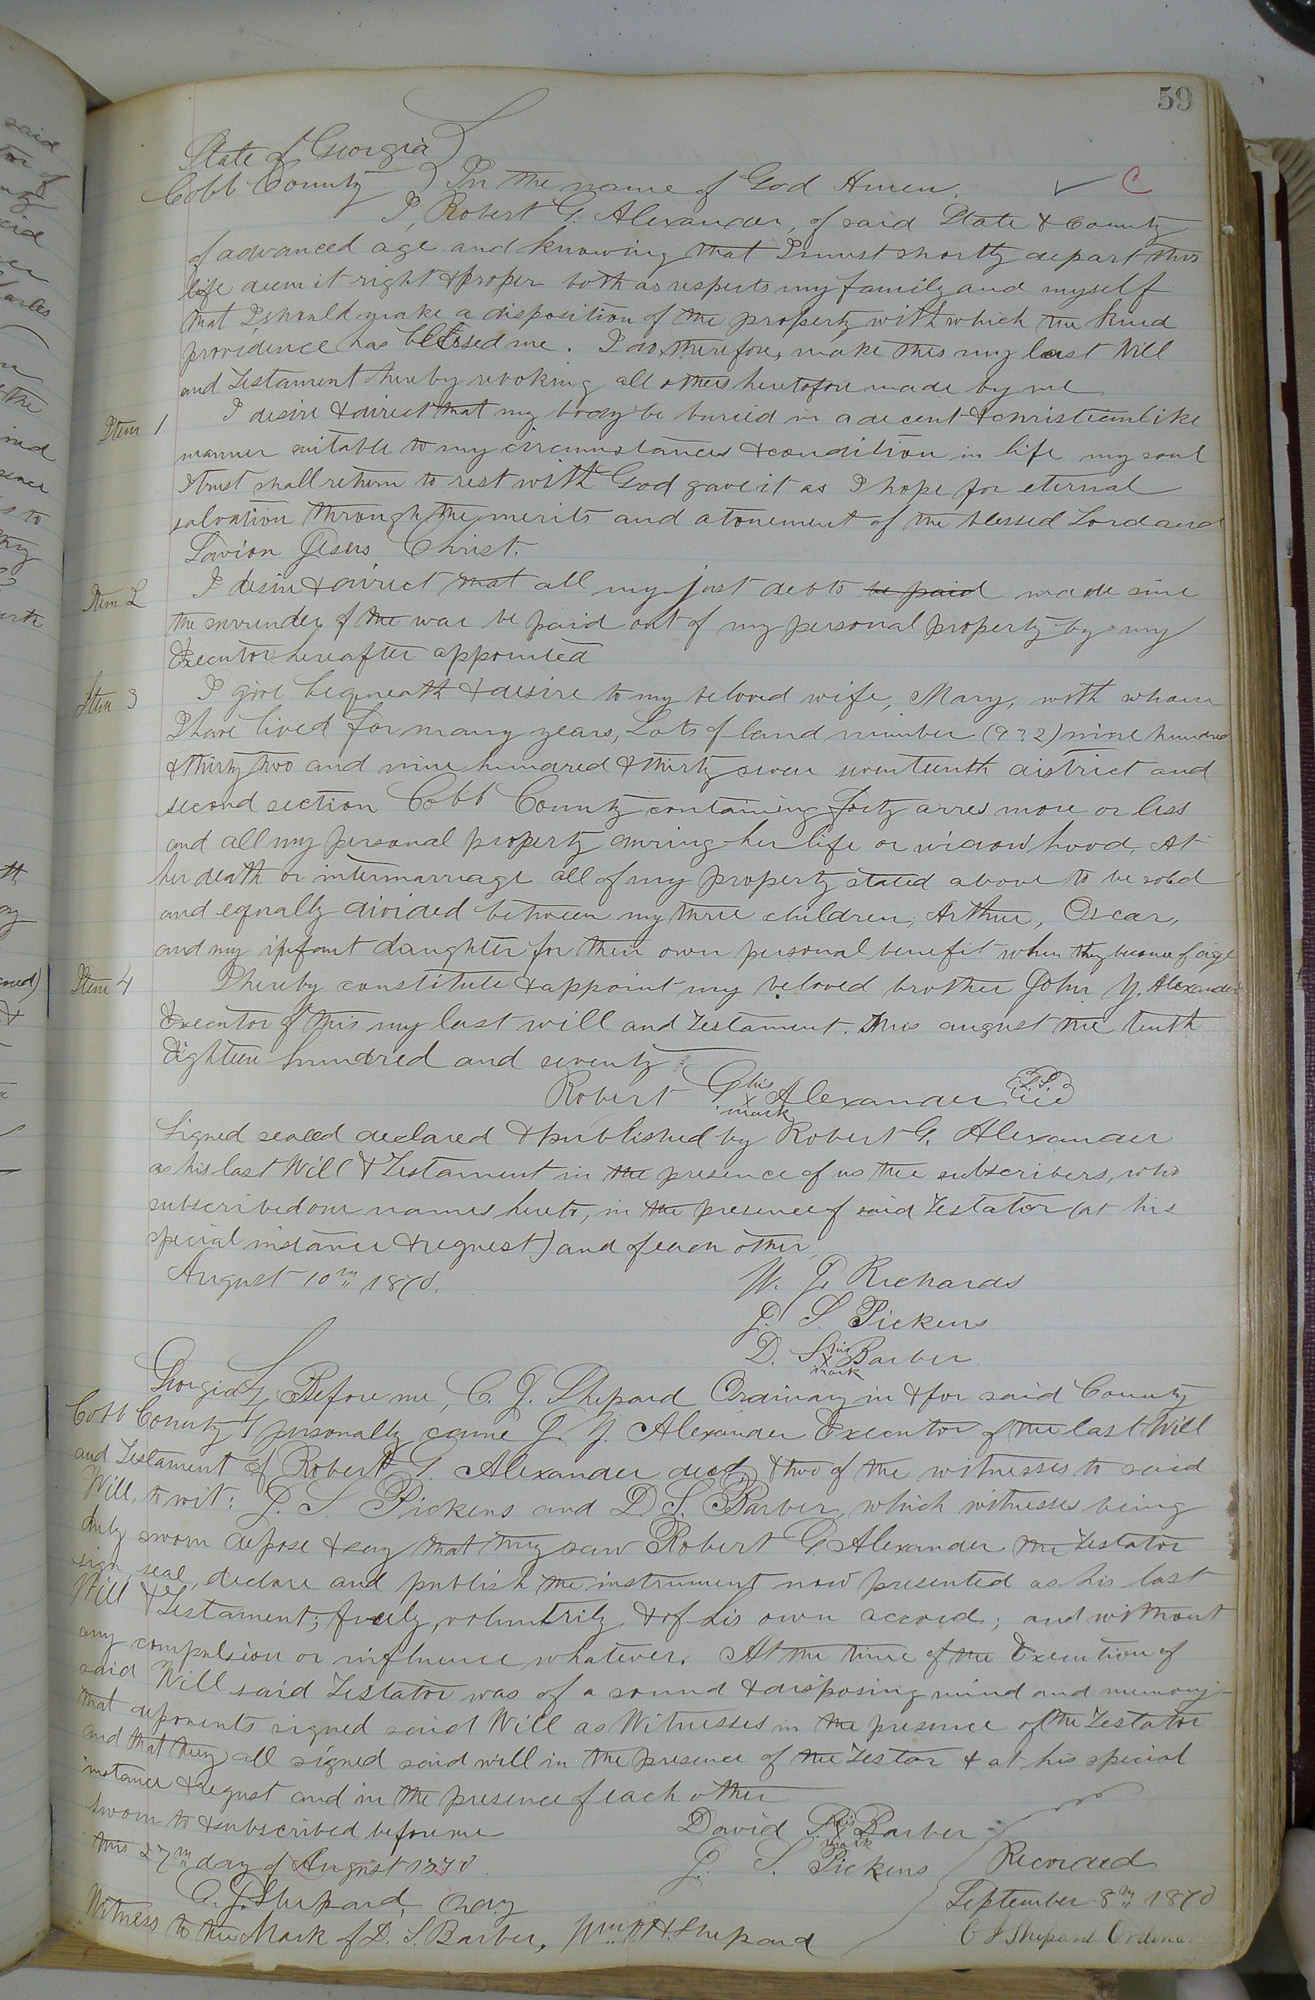 59
State of Georgia
Cobb County } In the name of God Amen. ✓ C
I, Robert G. Alexander, of said State & County
of advanced age and knowing that I must shortly depart this
life deem it right & proper both as respects my family and myself
that I should make a disposition of the property with which the kind
providence has blessed me. I do, therefore, make this my last Will
and Testament hereby revoking all others heretofore made by me
Item 1 I desire & direct that my body be buried in a decent & christianlike
manner suitable to my circumstances & condition in life my soul
I trust shall return to rest with God gave it as I hope for eternal
salvation through the merits and atonement of the blessed Lord and
Savior Jesus Christ.
Item 2 I desire & direct that all my just debts be paid made sine
the surrender of the war be paid out of my personal property by my
Executor hereafter appointed
Item 3 I give bequeath & desire to my beloved wife, Mary, with whom
I have lived for many years, Lots of land number (932) nine hundred
& thirty two and nine hundred & thirty seven seventeenth district and
second section Cobb County containing forty acres more or less
and all my personal property during her life or widowhood. At
her death or intermarriage all of my property stated above to be sold
and equally divided between my three children, Arthur, Oscar,
and my infant daughter for their own personal benefit when they become of age
Item 4 I hereby constitute & appoint my beloved brother John Y. Alexander
Executor of this my last will and testament. This august the tenth
Eighteen hundred and seventy
Robert G. his x mark Alexander L.S.
Signed sealed declared & published by Robert G. Alexander
as his last Will & Testament in the presence of us the subscribers, who
subscribed our names hereto, in the presence of said Testator (at his
special instance & request) and of each other
August 10th 1870. W. J. Richards
J. S. Pickens
D. S. his x mark Barber
Georgia } Before me, C. J. Shepard Ordinary in & for said County
Cobb County } personally came J. Y. Alexander Executor of the last Will
and Testament of Robert G. Alexander decd, & two of the witnesses to said
Will, to wit: J. S. Pickens and D. S. Barber, which witnesses being
duly sworn depose & say that they saw Robert G. Alexander the Testator
sign, seal, declare and publish the instrument now presented as his last
Will & Testament; freely, voluntrily & of his own accord; and without
any compulsion or influence whatever. At the time of the Execution of
said Will said Testator was of a sound & disposing mind and memory
that deponents signed said Will as Witnesses in the presence of the Testator
and that they all signed said will in the presence of the Testor & at his special
instance & request and in the presence of each other
Sworn to & subscribed before me David S. his x mark Barber
this 27th day of August 1870. J. S. Pickens Recorded
C. J. Shepard, Ordy September 8th 1870
Witness to the Mark of D. S. Barber, Wm H Shepard C J Shepard Ordina